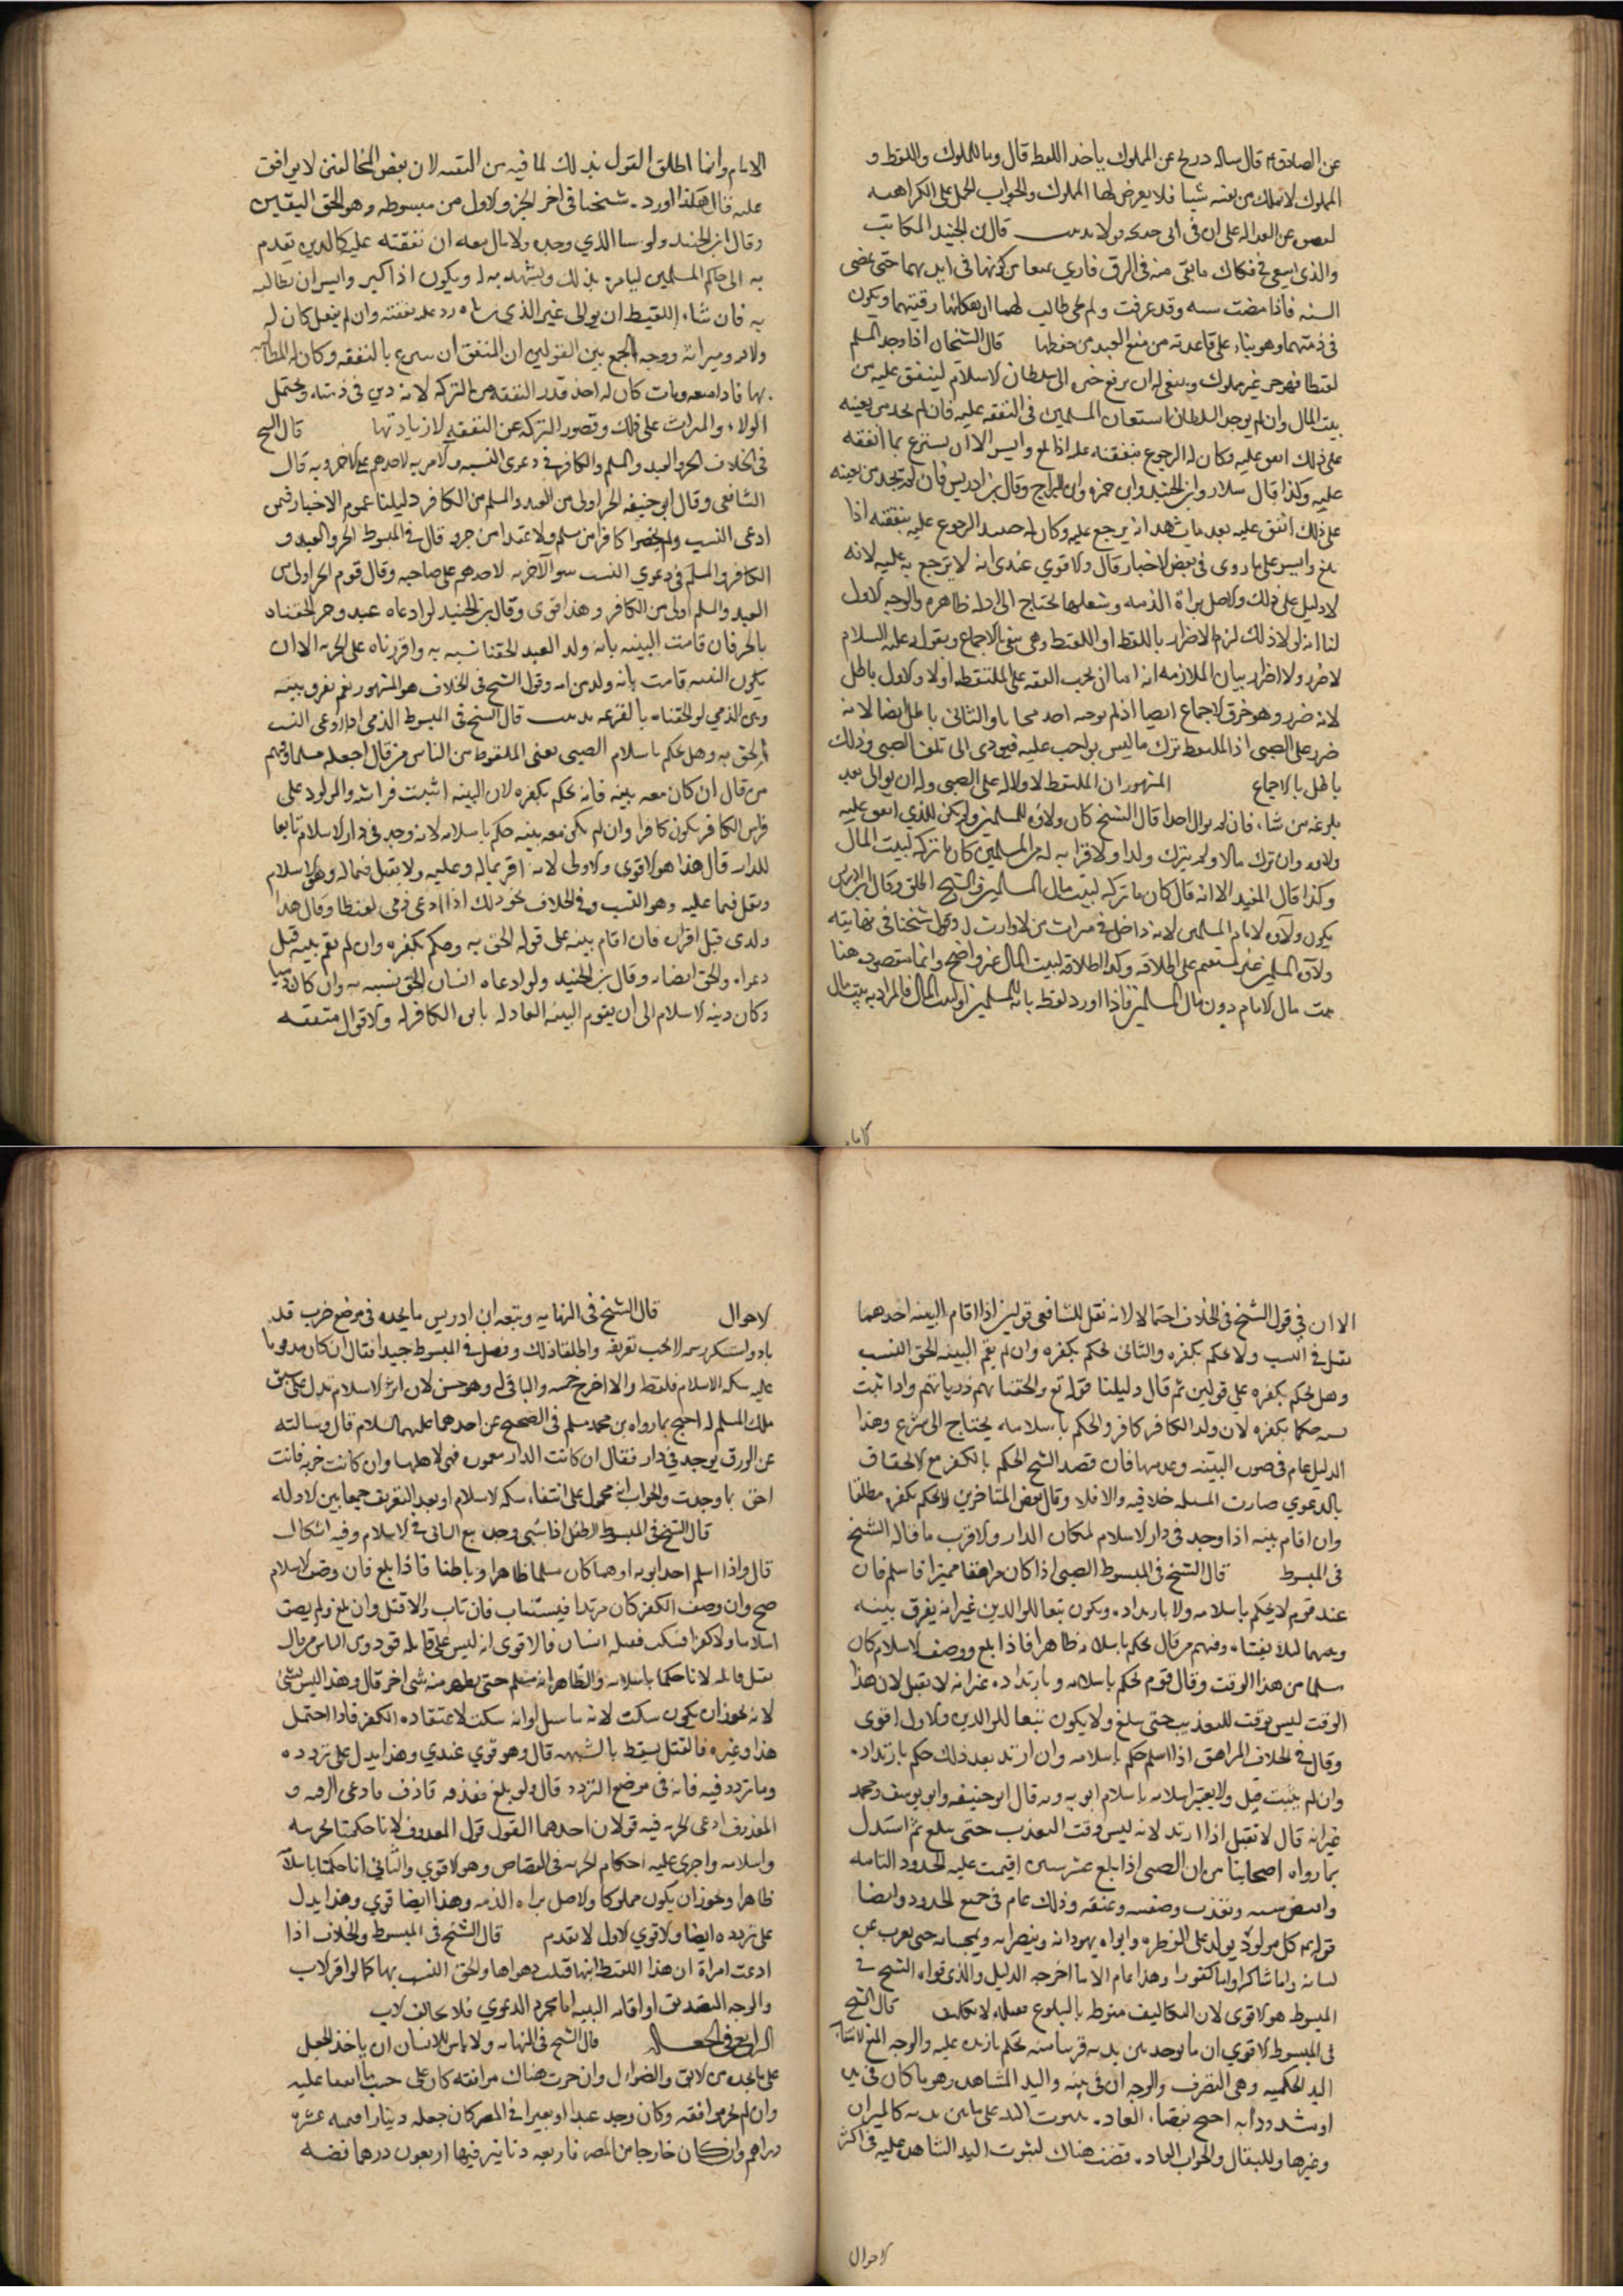 عن الصادق ع قال ساله ذريح عن المملوك ياخذ اللقطة قال وما للمملوك واللقطة و
المملوك لا يملك من نفسه شيا فلا يعرض لها المملوك والجواب الحمل على الكراهية
قال ابن الجنيد المكاتب
والذي يسعى في فكاك ما بقى منه في الرق في ايديهما حتى تمضى
السنه فاذا مضت سنه وقد عرفت ولم طالب لها رقبتهما ويكون
في ذمتهما وهو بناء على قاعدته من منع العبد من حفظها قال الشيخان اذا وجد المسلم
لقيطا فهو حر غير مملوك وينبغى له ان يرفع خبره الى سلطان الاسلام لينفق عليه من
بيت المال وان لم يوجد السلطان استعان المسلمين في النفقه عليه فان لم يجد من يعينه
على ذلك انفق عليه وكان له الرجوع بنفقته عليه اذا بلغ وايسر الا ان يتبرع بما انفقه
عليه وكذا قال سلار وابن الجنيد وابن حمزه وابن البراج وقال ابن ادريس فان لم يجد من يعينه
على ذلك انفق عليه بعد ما يشهد انه يرجع عليه وكان له الرجوع عليه بنفقته اذا
بلغ وايسر على ما روى في بعض الاخبار قال والاقوي عندى انه لا يرجع به عليه لانه
لا دليل على ذلك والاصل براة الذمه وشغلها يحتاج الى ادله ظاهره والوجه الاول
لنا انه لولا ذلك لزم الاضرار باللقيط او الملتقط وهى منفى بالاجماع وبقوله عليه السلام
لا ضرر ولا اضرار بيان الملازمه انه اما ان يجب النفقه على الملتقط اولا والاول باطل
لانه ضرر وهو خرق الاجماع ايضا اذ لم يوجبه احد مجانا والثانى باطل ايضا لانه
ضرر على الصبى اذ الملتقط ترك ما ليس بواجب عليه فيودى الى تلف الصبى وذلك
باطل بالاجماع المشهور ان الملتقط لا ولاء له على الصبى وله ان يوالى بعد
بلوغه من شاء فان لم يوال احدا قال الشيخ كان ولاؤه للمسلمين ولم يكن للذي انفق عليه
ولاوه وان ترك مالا ولم يترك ولدا ولا قرابه له من المسلمين كان ما تركه لبيت المال
وكذا قال المفيد الا انه قال كان ما تركه لبيت مال المسلمين وقال ابن ادريس
يكون ولآوه لامام المسلمين لانه داخل في ميراث من لا وارث له وقول شيخنا في نهايته
ولآوه للمسلمين غير مستقيم على اطلاقه وكذا اطلاقه لبيت المال غير واضح وانما مقصوده هنا
بيت مال الامام دون مال المسلمين فاذا اورد لفظ بانه للمسلمين او لبيت المال فالمراد به بيت مال
الامام
الامام وانما اطلق القول بذلك لما فيه من التقيه لان بعض المخالفين لا يوافق
عليه قال هكذا اورده شيخنا في اخر الجزو الاول من مبسوطه وهو الحق اليقين
وقال ابن الجنيد ولو سا الذي وجده ولا مال معه ان نفقته عليه كالدين تقدم
به الى حاكم المسلمين ليامره بذلك ويشهد به له ويكون اذا كبر وايسر ان يطالبه
به فان شاء اللقيط ان يوالى غير الذي رباه رد عليه نفقته وان لم يفعل كان له
ولاه وميراثه ووجه الجمع بين القولين ان المنفق ان تبرع بالنفقه وكان له المطالبه
بها فاذا ومات كان له اخذ قدر النفقه من التركه لانه دين في ذمته ويحتمل
الولاء والميراث على ذلك وقصور التركه عن النفقه لا زيادتها قال الشيخ
في الخلاف الحر والعبد والمسلم والكافر في دعوى النسب سوآ لا مزيه لاحدهم على الاخر وبه قال
الشافعى وقال ابى حنيفه الحر اولى من العبد والمسلم من الكافر دليلنا عموم الاخبار فيمن
ادعى النسب ولم يخصوا كافرا من مسلم ولا عبدا من حر وقال في المبسوط الحر والعبد و
الكافر والمسلم في دعوي النسب سوآ لا مزيه لاحدهم على صاحبه وقال قوم الحر اولى من
العبد والمسلم اولى من الكافر وهذا اقوى وقال بن الجنيد لو ادعاه عبد وحر الحقناه
بالحر فان قامت البينه بانه ولد العبد الحقنا نسبه به واقررناه على الحريه الا ان
يكون البينه قامت بانه ولد من امه وقول الشيخ في الخلاف هو المشهور نعم نفرق بينه
وبين الذمي لو الحقناه بالقرعه قال الشيخ في المبسوط الذمي اذا ادعى النسب
الحق به وهل يحكم باسلام الصبى يعنى الملقوط من الناس من قال اجعله مسلما ومنهم
من قال ان كان معه بينه فانه يحكم بكفره لان البينه اثبتت فراشه والمولود على
فراش الكافر يكون كافرا وان لم يكن معه بينه حكم باسلامه لانه وجد في دار الاسلام تابعا
للدار قال هذا هو الاقوى والاولى لانه اقر بماله وعليه ولا يقبل فيما له وهو الاسلام
ويقبل فيما عليه وهو النسب وفي الخلاف نحو ذلك اذا ادعى ذمى لقيطا وقال هذا
ولدى قبل اقراره فان اقام بينه على قوله الحق به وحكم بكفره وان لم يقم بينه قبل
دعواه والحق ايضا به وقال بن الجنيد ولو ادعاه انسان الحق نسبه به وان كان ذميا
وكان دينه الاسلام الى ان يقوم البينه العادله بابن الكافر له والاقوال متفقه
الا ان في قول الشيخ في الخلاف احتمالا لانه نقل للشافعى قولين اذا اقام البينه احدهما
يقبل في النسب ولا يحكم بكفره والثانى يحكم بكفره وان لم يقم البينه الحق النسب
وهل يحكم بكفره على قولين ثم قال دليلنا قوله تع والحقنا بهم ذرياتهم واذا ثبت
نسبه حكما بكفره لان ولد الكافر كافر والحكم باسلامه يحتاج الى شرع وهذا
الدليل عام في صورة البينه وعدمها فان قصد الشيخ الحكم بالكفر مع الالحقاق
بالدعوي صارت المسله خلافيه والا فلا وقال بعض المتاخرين لا يحكم بكفره مطلقا
وان اقام بينه اذا وجد في دار الاسلام لمكان الدار والاقرب ما قاله الشيخ
في المبسوط قال الشيخ في المبسوط الصبى اذا كان مراهقا مميزا فاسلم فان
عند قوم لا يحكم باسلامه ولا بارتداده ويكون تبعا للوالدين غير انه يفرق بينه
وبينهما لئلا يفتناه ومنهم من قال يحكم باسلامه ظاهرا فاذا بلغ ووصف الاسلام كان
مسلما من هذا الوقت وقال قوم يحكم باسلامه وبارتداده غير انه لا يقتل لان هذا
الوقت ليس بوقت للتعذيب حتى يبلغ ولا يكون تبعا للوالدين والاول اقوى
وقال في الخلاف المراهق اذا اسلم حكم باسلامه وان ارتد بعد ذلك حكم بارتداده
وان لم يتب قتل ولا يعتبر اسلامه باسلام ابويه وبه قال ابو حنيفه وابو يوسف ومحمد
غير انه قال لا يقتل اذا ارتد لانه ليس وقت التعذيب حتى يبلغ ثم استدل
بما رواه اصحابنا من ان الصبى اذا بلغ عشر سنين اقيمت عليه الحدود التامه
واقتص منه ونفذت وصيته وعتقه وذلك عام في جميع الحدود وايضا
قوله ع كل مولود يولد على الفطره وابواه يهودانه وينصرانه ويمجسانه حتى يعرب عن
لسانه واما شاكرا واما كفورا وهذا عام الا ما اخرجه الدليل والذي قواه الشيخ في
المبسوط هو الاقوى لان التكاليف منوطه بالبلوغ قال الشيخ
في المبسوط الاقوي ان ما يوجد بين يديه قريبا منه يحكم بان يده عليه والوجه المنع لانتفاء
اليد الحكميه وهى التصرف والوجه ان في بيته واليد المشاهده وهو ما كان في يده
او يشد ودابه احتج بقضاء العاده بثبوت اليد على ما بين يديه كالميزان
وغيرها وللبقال والجواب العاده قضت هناك لثبوت اليد الشاهده عليه في اكثر
الاحوال
الاحوال قال الشيخ في النهايه وتبعه ابن ادريس ما يجده في موضع خرب قد
باد واستنكر رسمه لا يجب تعريفه واطلقا ذلك وفصل في المبسوط جيدا فقال ان كان مضروبا
عليه سكه الاسلام فلقطه والا اخرج خمسه والباقى له وهو حسن لان اثر الاسلام يدل على سبق
ملك المسلم له احتج بما رواه بن محمد مسلم في الصحيح عن احدهما عليهما السلام قال وسالته
عن الورق يوجد في دار فقال ان كانت الدار معموره فهى لاهلها وان كانت خربه فانت
احق بما وجدت والجواب انه محمول على انتفاء سكه الاسلام او بعد التعريف جمعا بين الادله
قال الشيخ في المبسوط الطفل اذا سبى وجده تبع السابى في الاسلام وفيه اشكال
قال واذا اسلم احد ابويه او هما كان مسلما ظاهرا وباطنا فاذا بلغ فان وصف الاسلام
صح وان وصف الكفر كان مرتدا فيستتاب فان تاب والا قتل وان بلغ ولم يصف
اسلاما ولا كفرا فسكت فقتله انسان فالاقوى انه ليس على قاتله قود ومن الناس من قال
يقتل قاتله لانا حكمنا باسلامه والظاهر انه مسلم حتى يظهر منه شى اخر قال وهذا ليس بشئ
لانه يجوز ان يكون سكت لانه ما سئل او انه سكت لاعتقاده الكفر فاذا احتمل
هذا وغيره فالقتل يسقط بالشبهه قال وهو قوي عندي وهذا يدل على تردده
وما تردد فيه فانه في موضع التردد قال ولو بلغ فقذفه قاذف فادعى الرقيه و
المقذوف ادعى الحريه فيه قولان احدهما القول قول المقذوف لانا حكمنا بحريته
واسلامه واجرى عليه احكام الحريه في القصاص وهو الاقوي والثاني انا حكمنا باسلامه
ظاهرا ويجوز ان يكون مملوكا والاصل براه الذمه وهذا ايضا قوي وهذا يدل
على تردده ايضا والاقوي الاول لما تقدم قال الشيخ في المبسوط والخلاف اذا
ادعت امراة ان هذا اللقيط ابنها قبلت دعواها والحق النسب بها كما لو اقر الاب
والوجه التصديق او اقامه البينه اما مجرد الدعوي فلا بخالف الاب
الرابع في الجعاله قال الشيخ في النهايه ولا باس للانسان ان ياخذ الجعل
على ما يجده من الابق والضوال وان جرت هناك موافقه كان على حسب ما اتفقا عليه
وان لم يجر موافقه وكان وجد عبدا او بعيرا في المصر كان جعله دينارا قيمته عشره
دراهم وان كان خارجا من المصر فاربعه دنانير قيمتها اربعون درهما فضه